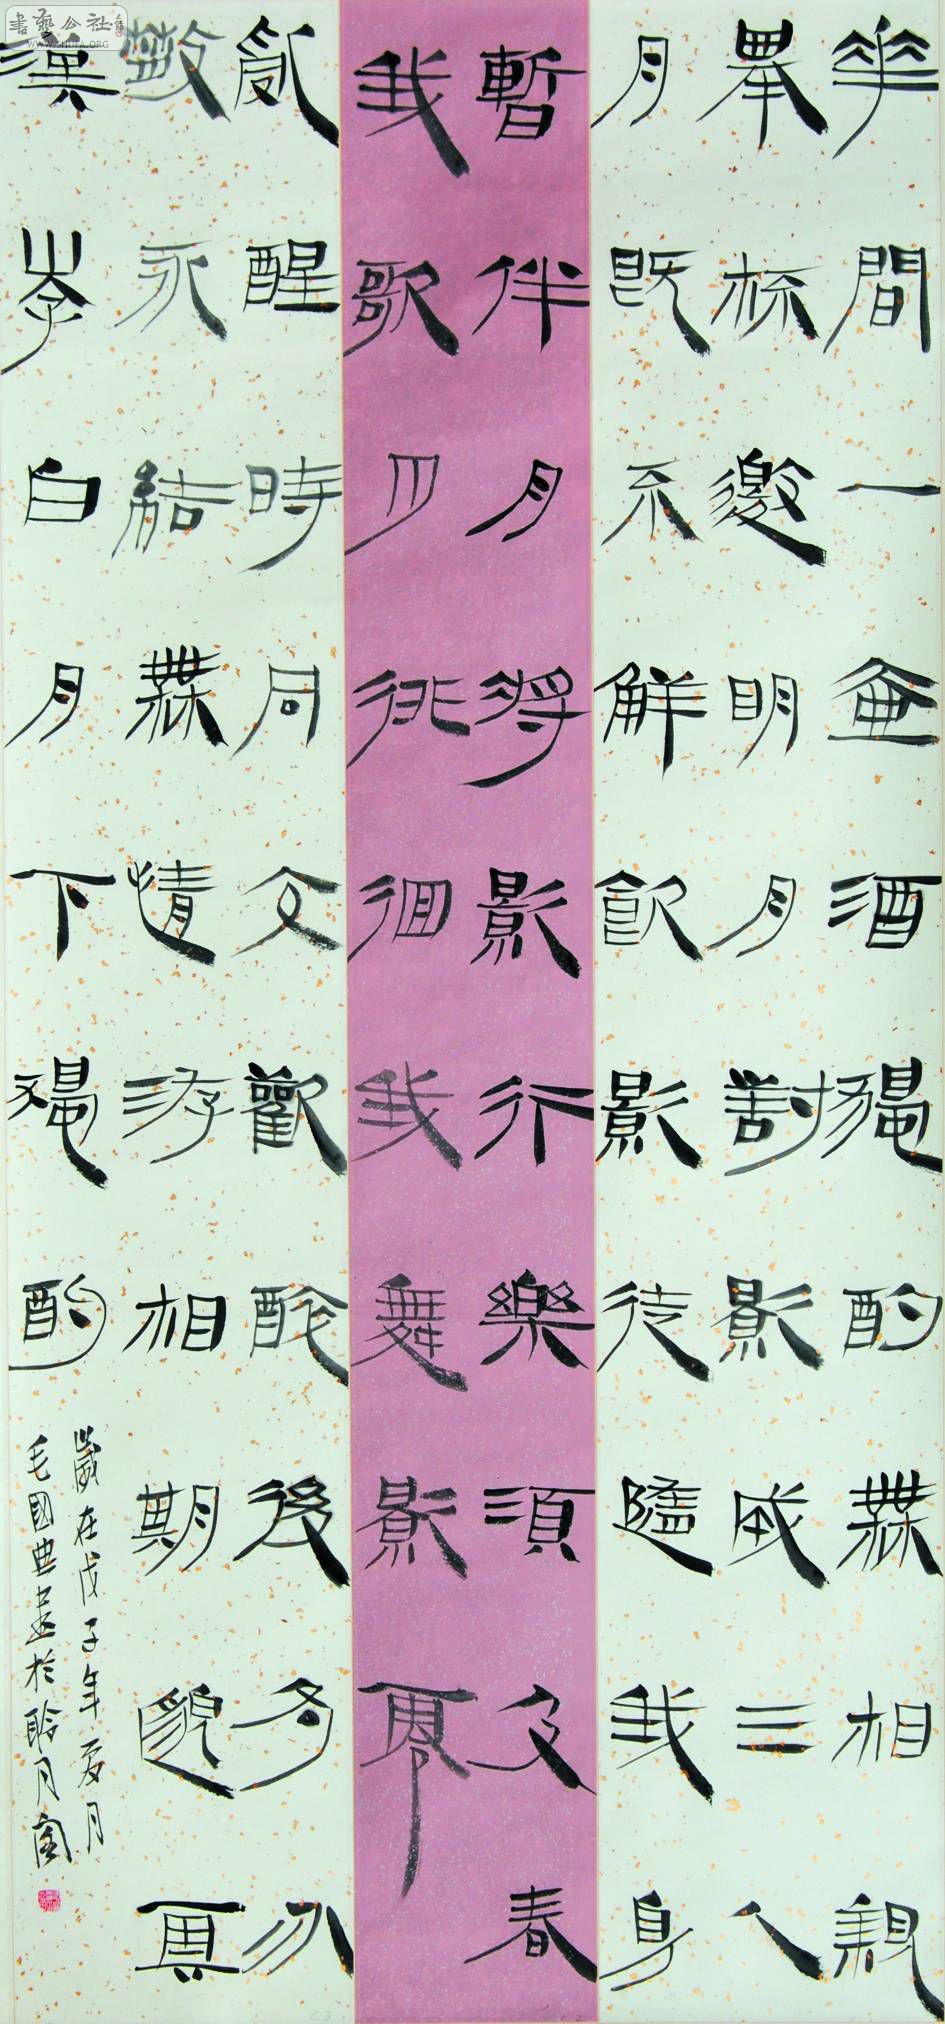 書藝公社
WWW.SHUFA.ORG
華間一壺酒獨酌無相親
舉杯邀明月對影成三人
月既不解飲影徒隨我身
暫伴月將影行樂須及春
我歌月徘徊我舞影零
亂醒時同交歡醉後各分
散永結無情游相期邈雲
漢李白月下獨酌
歲在戊子年夏月
毛國典書於聆月閣